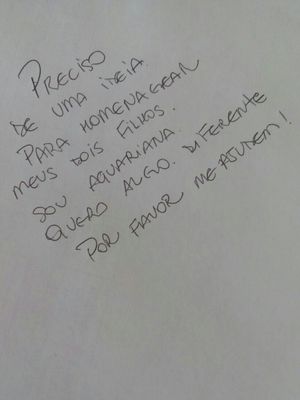 PRECISO
DE UMA IDEIA.
PARA HOMENAGEAR
MEUS DOIS FILHOS.
SOU AQUARIANA.
QUERO ALGO. DIFERENTE
POR FAVOR ME AJUDEM!